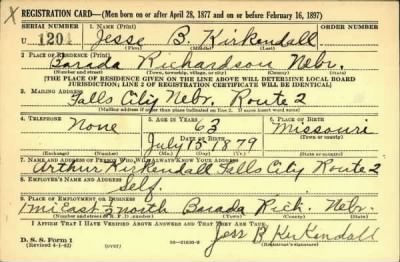 REGISTRATION CARD—(Men born on or after April 28, 1877 and on or before February 16, 1897)
SERIAL NUMBER 1. NAME (Print) ORDER NUMBER
U 1201 Jesse B Kirkendall
(First) (Middle) (Last)
2. PLACE OF RESIDENCE (Print)
Barada Richardson Nebr.
(Number and street) (Town, township, village, or city) (County) (State)
[THE PLACE OF RESIDENCE GIVEN ON THE LINE ABOVE WILL DETERMINE LOCAL BOARD
JURISDICTION; LINE 2 OF REGISTRATION CERTIFICATE WILL BE IDENTICAL]
3. MAILING ADDRESS
Falls City Nebr. Route 2
[Mailing address if other than place indicated on line 2. If same insert word same]
4. TELEPHONE 5. AGE IN YEARS 6. PLACE OF BIRTH
None 63 Missouri
DATE OF BIRTH (Town or county)
July 15 1879
(Exchange) (Number) (Mo.) (Day) (Yr.) (State or country)
7. NAME AND ADDRESS OF PERSON WHO WILL ALWAYS KNOW YOUR ADDRESS
Arthur Kirkendall Falls City Route 2
8. EMPLOYER'S NAME AND ADDRESS
Self.
9. PLACE OF EMPLOYMENT OR BUSINESS
1 mi East ½ north Barada Rich. Nebr.
(Number and street or R. F. D. number) (Town) (County) (State)
I AFFIRM THAT I HAVE VERIFIED ABOVE ANSWERS AND THAT THEY ARE TRUE.
D. S. S. Form 1
(Revised 4-1-42) (over) Jess B Kirkendall
(Registrant's signature)